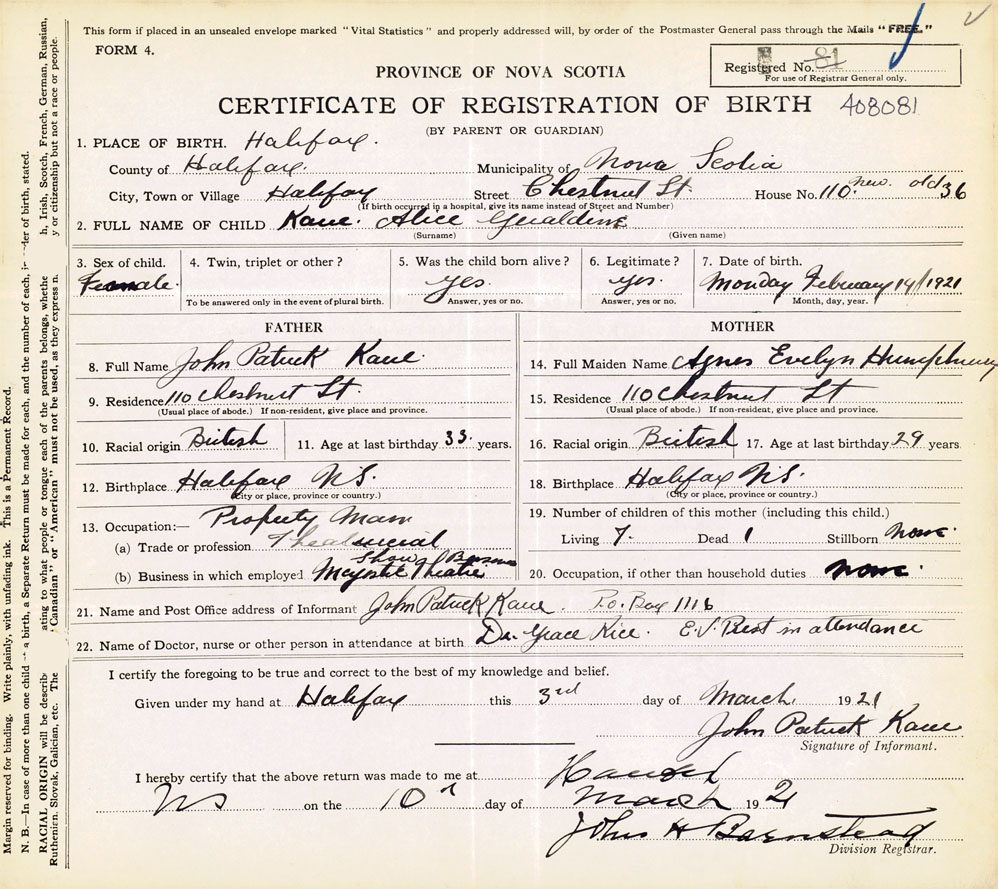 This form if placed in an unsealed envelope marked "Vital Statistics" and properly addressed will, by order of the Postmaster General pass through the Mails "FREE."
FORM 4.
Registered No. 81
For use of Registrar General only.
PROVINCE OF NOVA SCOTIA
CERTIFICATE OF REGISTRATION OF BIRTH 408081
(BY PARENT OR GUARDIAN)
1. PLACE OF BIRTH. Halifax.
County of Halifax. Municipality of Nova Scotia
City, Town or Village Halifax Street Chestnut St. House No. 110 new. old 36
(If birth occurred in a hospital, give its name instead of Street and Number)
2. FULL NAME OF CHILD Kane. Alice Geraldine
(Surname) (Given name)
3. Sex of child. 4. Twin, triplet or other? 5. Was the child born alive? 6. Legitimate? 7. Date of birth.
Female. yes. yes. Monday February 14/1921
To be answered only in the event of plural birth. Answer, yes or no. Answer, yes or no. Month, day, year.
FATHER
8. Full Name John Patrick Kane.
9. Residence 110 Chestnut St.
(Usual place of abode.) If non-resident, give place and province.
10. Racial origin British 11. Age at last birthday 33. years.
12. Birthplace Halifax N.S.
(City or place, province or country.)
13. Occupation:— Property Man
(a) Trade or profession Theatrical
Show Business
(b) Business in which employed Majestic Theatre
MOTHER
14. Full Maiden Name Agnes Evelyn Humphrey
15. Residence 110 Chestnut St
(Usual place of abode.) If non-resident, give place and province.
16. Racial origin British 17. Age at last birthday 29 years.
18. Birthplace Halifax N.S.
(City or place, province or country.)
19. Number of children of this mother (including this child.)
Living 7. Dead 1 Stillborn none.
20. Occupation, if other than household duties none.
21. Name and Post Office address of Informant John Patrick Kane. P.O. Box 1116
22. Name of Doctor, nurse or other person in attendance at birth Dr. Grace Rice. E.V. Best in attendance
I certify the foregoing to be true and correct to the best of my knowledge and belief.
Given under my hand at Halifax this 3rd day of March. 1921
John Patrick Kane
Signature of Informant.
I hereby certify that the above return was made to me at
NS on the 10th day of March 1921
John H Barnstead
Division Registrar.
Margin reserved for binding. Write plainly, with unfading ink. This is a Permanent Record.
N. B.—In case of more than one child a birth, a Separate Return must be made for each, and the number of each, order of birth, stated.
RACIAL ORIGIN will be describ ating to what people or tongue each of the parents belongs, whethe h, Irish, Scotch, French, German, Russian,
Ruthenian, Slovak, Galician, etc. The "Canadian" or "American" must not be used, as they express n y or citizenship but not a race or people.